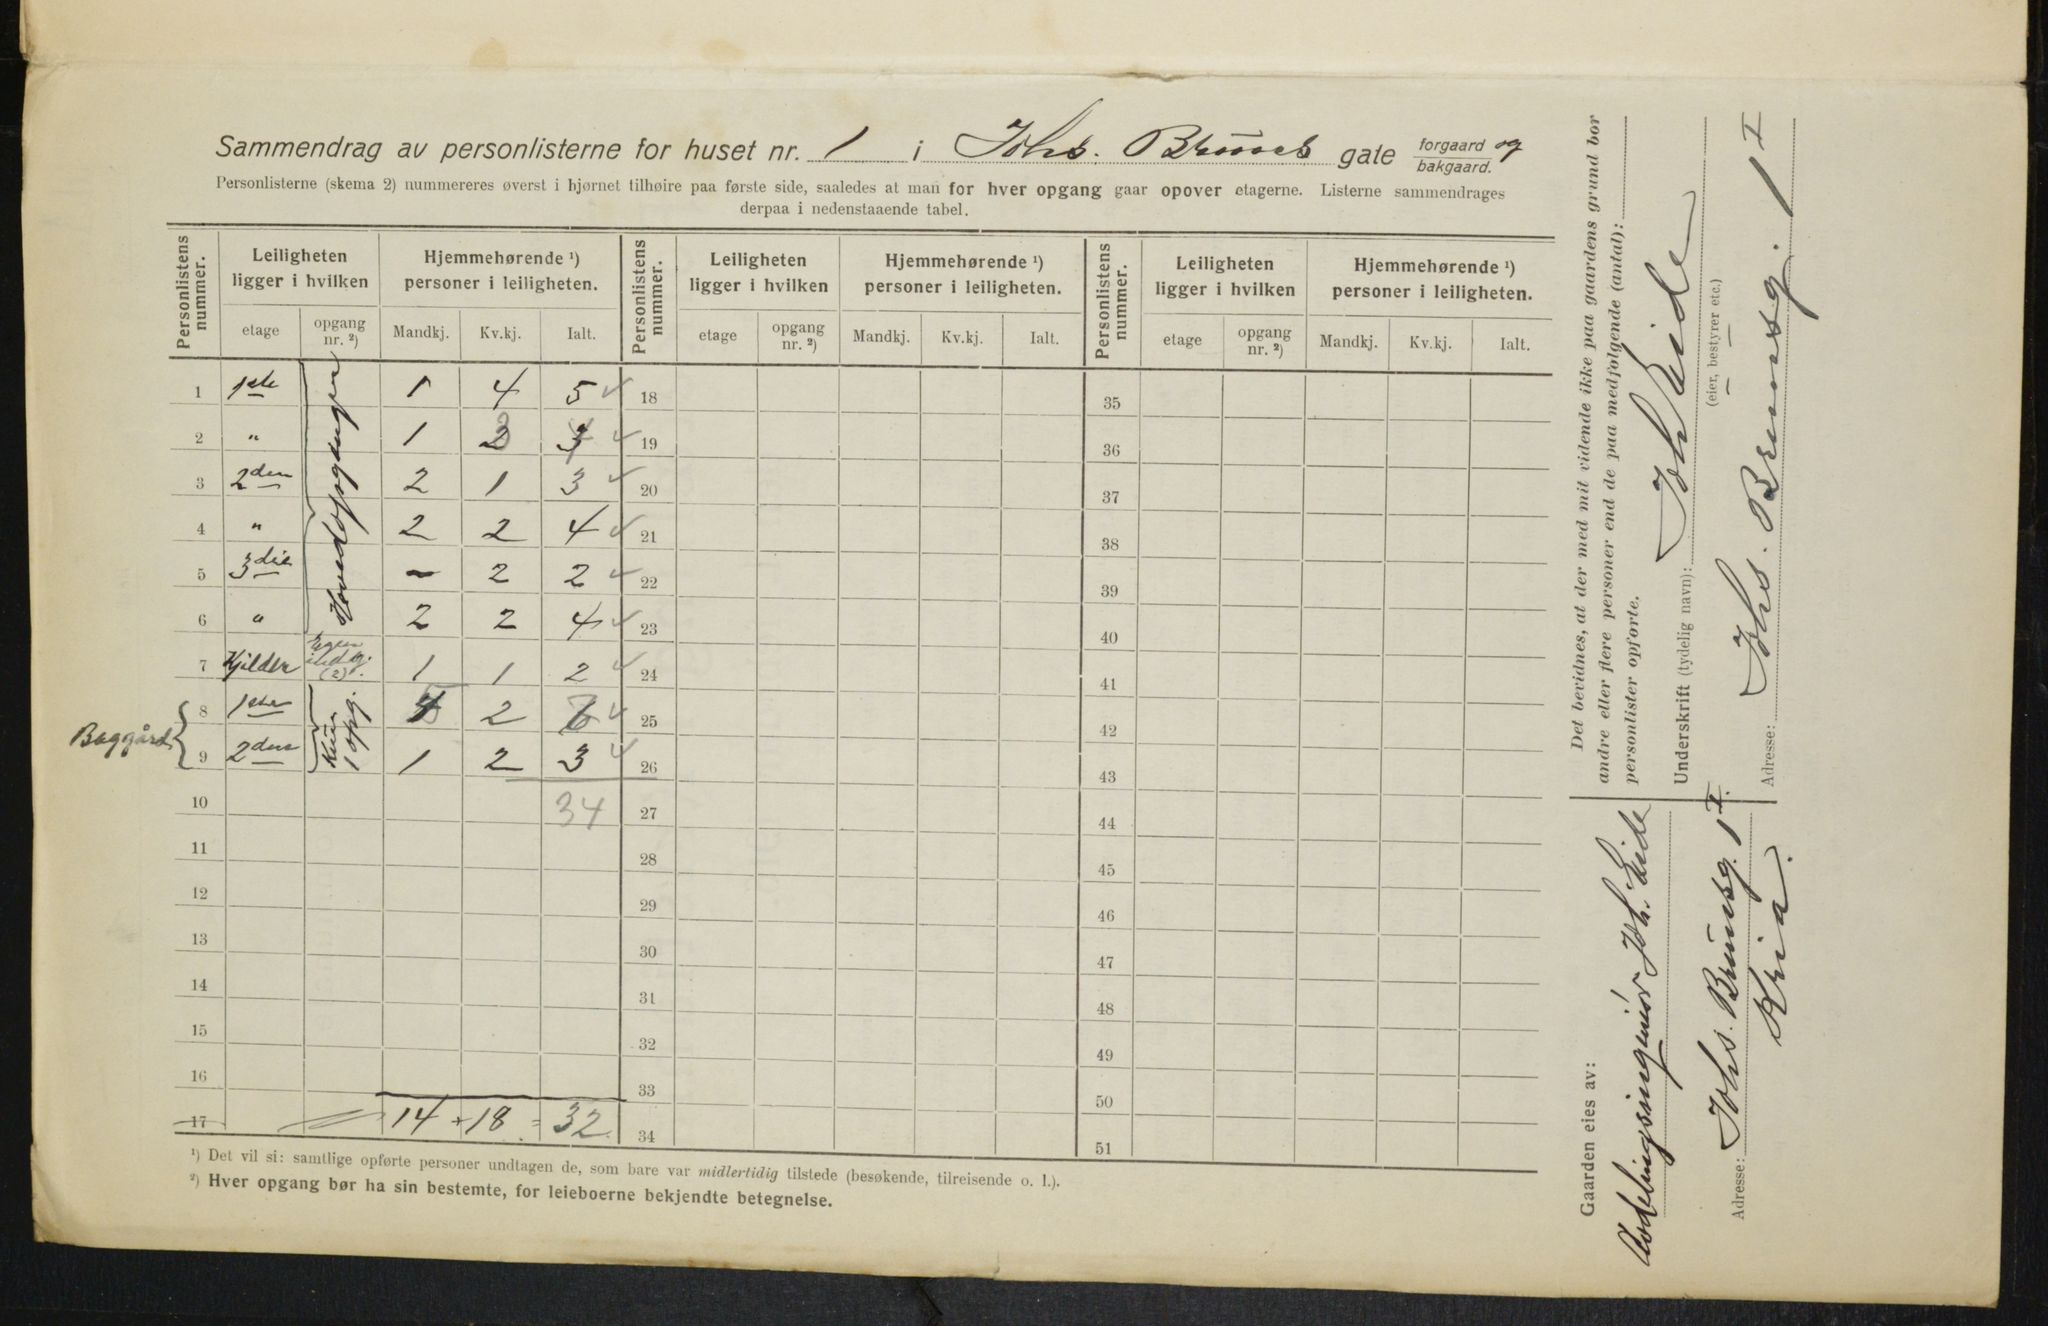 Sammendrag av personlisterne for huset nr. 1 i Johs. Bruns gate forgaard og bakgaard.
Personlisterne (skema 2) nummereres øverst i hjørnet tilhøire paa første side, saaledes at man for hver opgang gaar opover etagerne. Listerne sammendrages
derpaa i nedenstaaende tabel.
Personlistens nummer. Leiligheten ligger i hvilken Hjemmehørende ¹) personer i leiligheten. Personlistens nummer. Leiligheten ligger i hvilken Hjemmehørende ¹) personer i leiligheten. Personlistens nummer. Leiligheten ligger i hvilken Hjemmehørende ¹) personer i leiligheten.
etage opgang nr. ²) Mandkj. Kv.kj. Ialt. etage opgang nr. ²) Mandkj. Kv.kj. Ialt. etage opgang nr. ²) Mandkj. Kv.kj. Ialt.
Hovedopgangen
1 1ste 1 4 5 18 35
2 " 1 3 4 19 36
3 2den 2 1 3 20 37
4 " 2 2 4 21 38
5 3die - 2 2 22 39
6 " 2 2 4 23 40
7 Kjelder (2) 1 1 2 24 41
Baggård
Kun 1 opg.
8 1ste 5 2 7 25 42
9 2den 1 2 3 26 43
10 34 27 44
11 28 45
12 29 46
13 30 47
14 31 48
15 32 49
16 33 50
17 14 + 18 = 32 34 51
¹) Det vil si: samtlige opførte personer undtagen de, som bare var midlertidig tilstede (besøkende, tilreisende o. l.).
²) Hver opgang bør ha sin bestemte, for leieboerne bekjendte betegnelse.
Det bevidnes, at der med mit vidende ikke paa gaardens grund bor
andre eller flere personer end de paa medfølgende (antal):
personlister opførte.
Underskrift (tydelig navn): Joh Eide
(eier, bestyrer etc.)
Adresse: Johs. Brunsg. 1 I
Gaarden eies av:
Avdelingsingeniør Joh. Eide
Adresse: Johs. Brunsg. 1 I.
Kria.